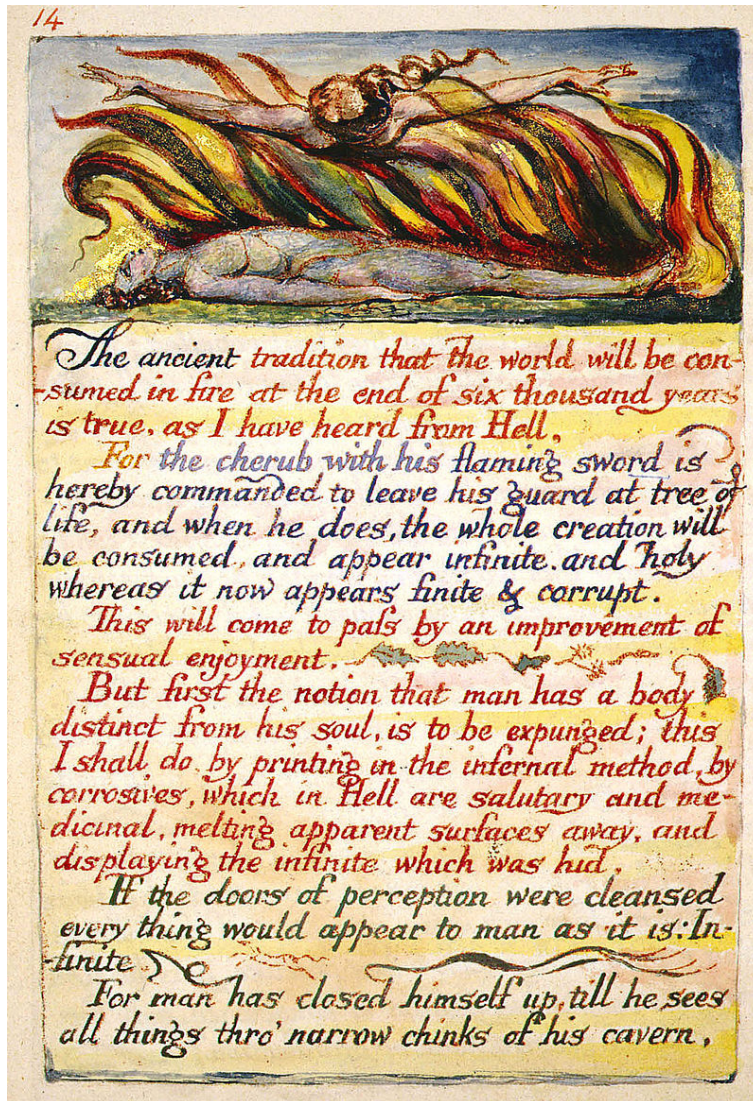 14
The ancient tradition that the world will be con-
-sumed in fire at the end of six thousand years
is true, as I have heard from Hell.
For the cherub with his flaming sword is
hereby commanded to leave his guard at tree of
life, and when he does, the whole creation will
be consumed, and appear infinite. and holy
whereas it now appears finite & corrupt.
This will come to paſs by an improvement of
sensual enjoyment.
But first the notion that man has a body
distinct from his soul, is to be expunged; this
I shall do, by printing in the infernal method, by
corrosives, which in Hell are salutary and me-
dicinal, melting apparent surfaces away, and
displaying the infinite which was hid.
If the doors of perception were cleansed
every thing would appear to man as it is: In-
-finite.
For man has closed himself up, till he sees
all things thro' narrow chinks of his cavern.